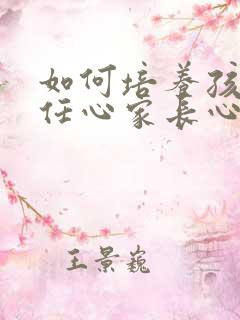 如何培养孩
任心家长心
王景巍